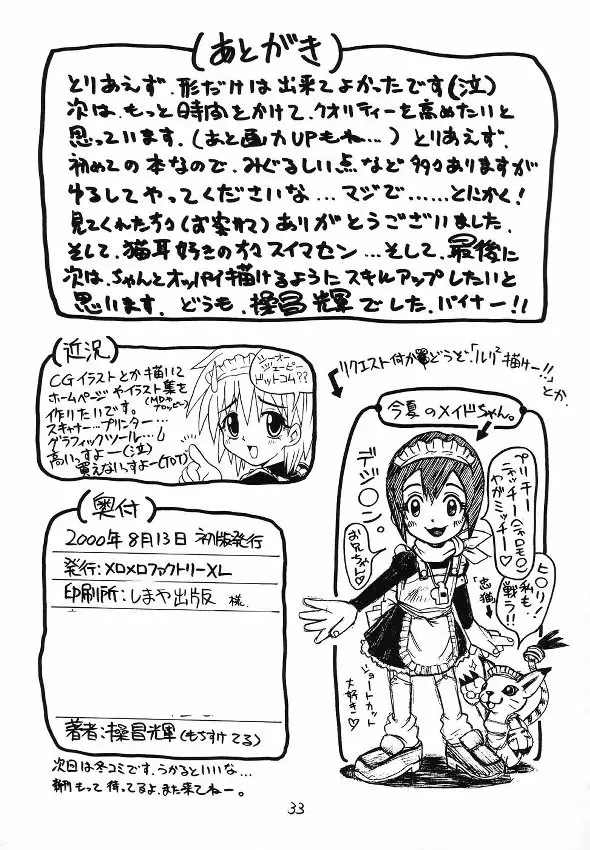 (あとがき)
とりあえず、形だけは出来てよかったです(泣)
次は、もっと時間をかけて、クオリティーを高めたいと
思っています。(あと画力UPもね…) とりあえず、
初めての本なので、みぐるしい点など多々ありますが
ゆるしてやってくださいな…マジで……とにかく!
見てくれた方々(お客さて)ありがとうございました。
そして、猫耳好きの方々スイマセン…そして、最後に
次は、ちゃんとオッパイ描けるようにスキルアップしたいと
思います。どうも、操昌輝でした。バイナー!!
(近況)
CGイラストとか描いて
ホームページやイラスト集を
作りたいです。(MDやフロッピー)
スキャナー…プリンター…
グラフィックツール…し
高いっすよー(泣)
買えないっすよー(T0T)
ジーオー
ジェーピー
ドットコム??
リクエスト何か
どうぞ、「ルリ²描けー!!」
とか、
今夏のメイドちゃん。
デジ○ン。
プリチー
ニャッチー(ニャロモ○)
やがミッチー♡
お兄ちゃん♡
ヒ○リ!
私も
戦う!!
「忠猫」
ショートカット
大好き♡
(奥付)
2000年8月13日 初版発行
発行:メロメロファクトリーXL
印刷所:しまや出版 様
著者:操昌輝(もちすけてる)
次回は冬コミです。うかるといいな…
新刊もって待ってるよ、また来てねー。
33